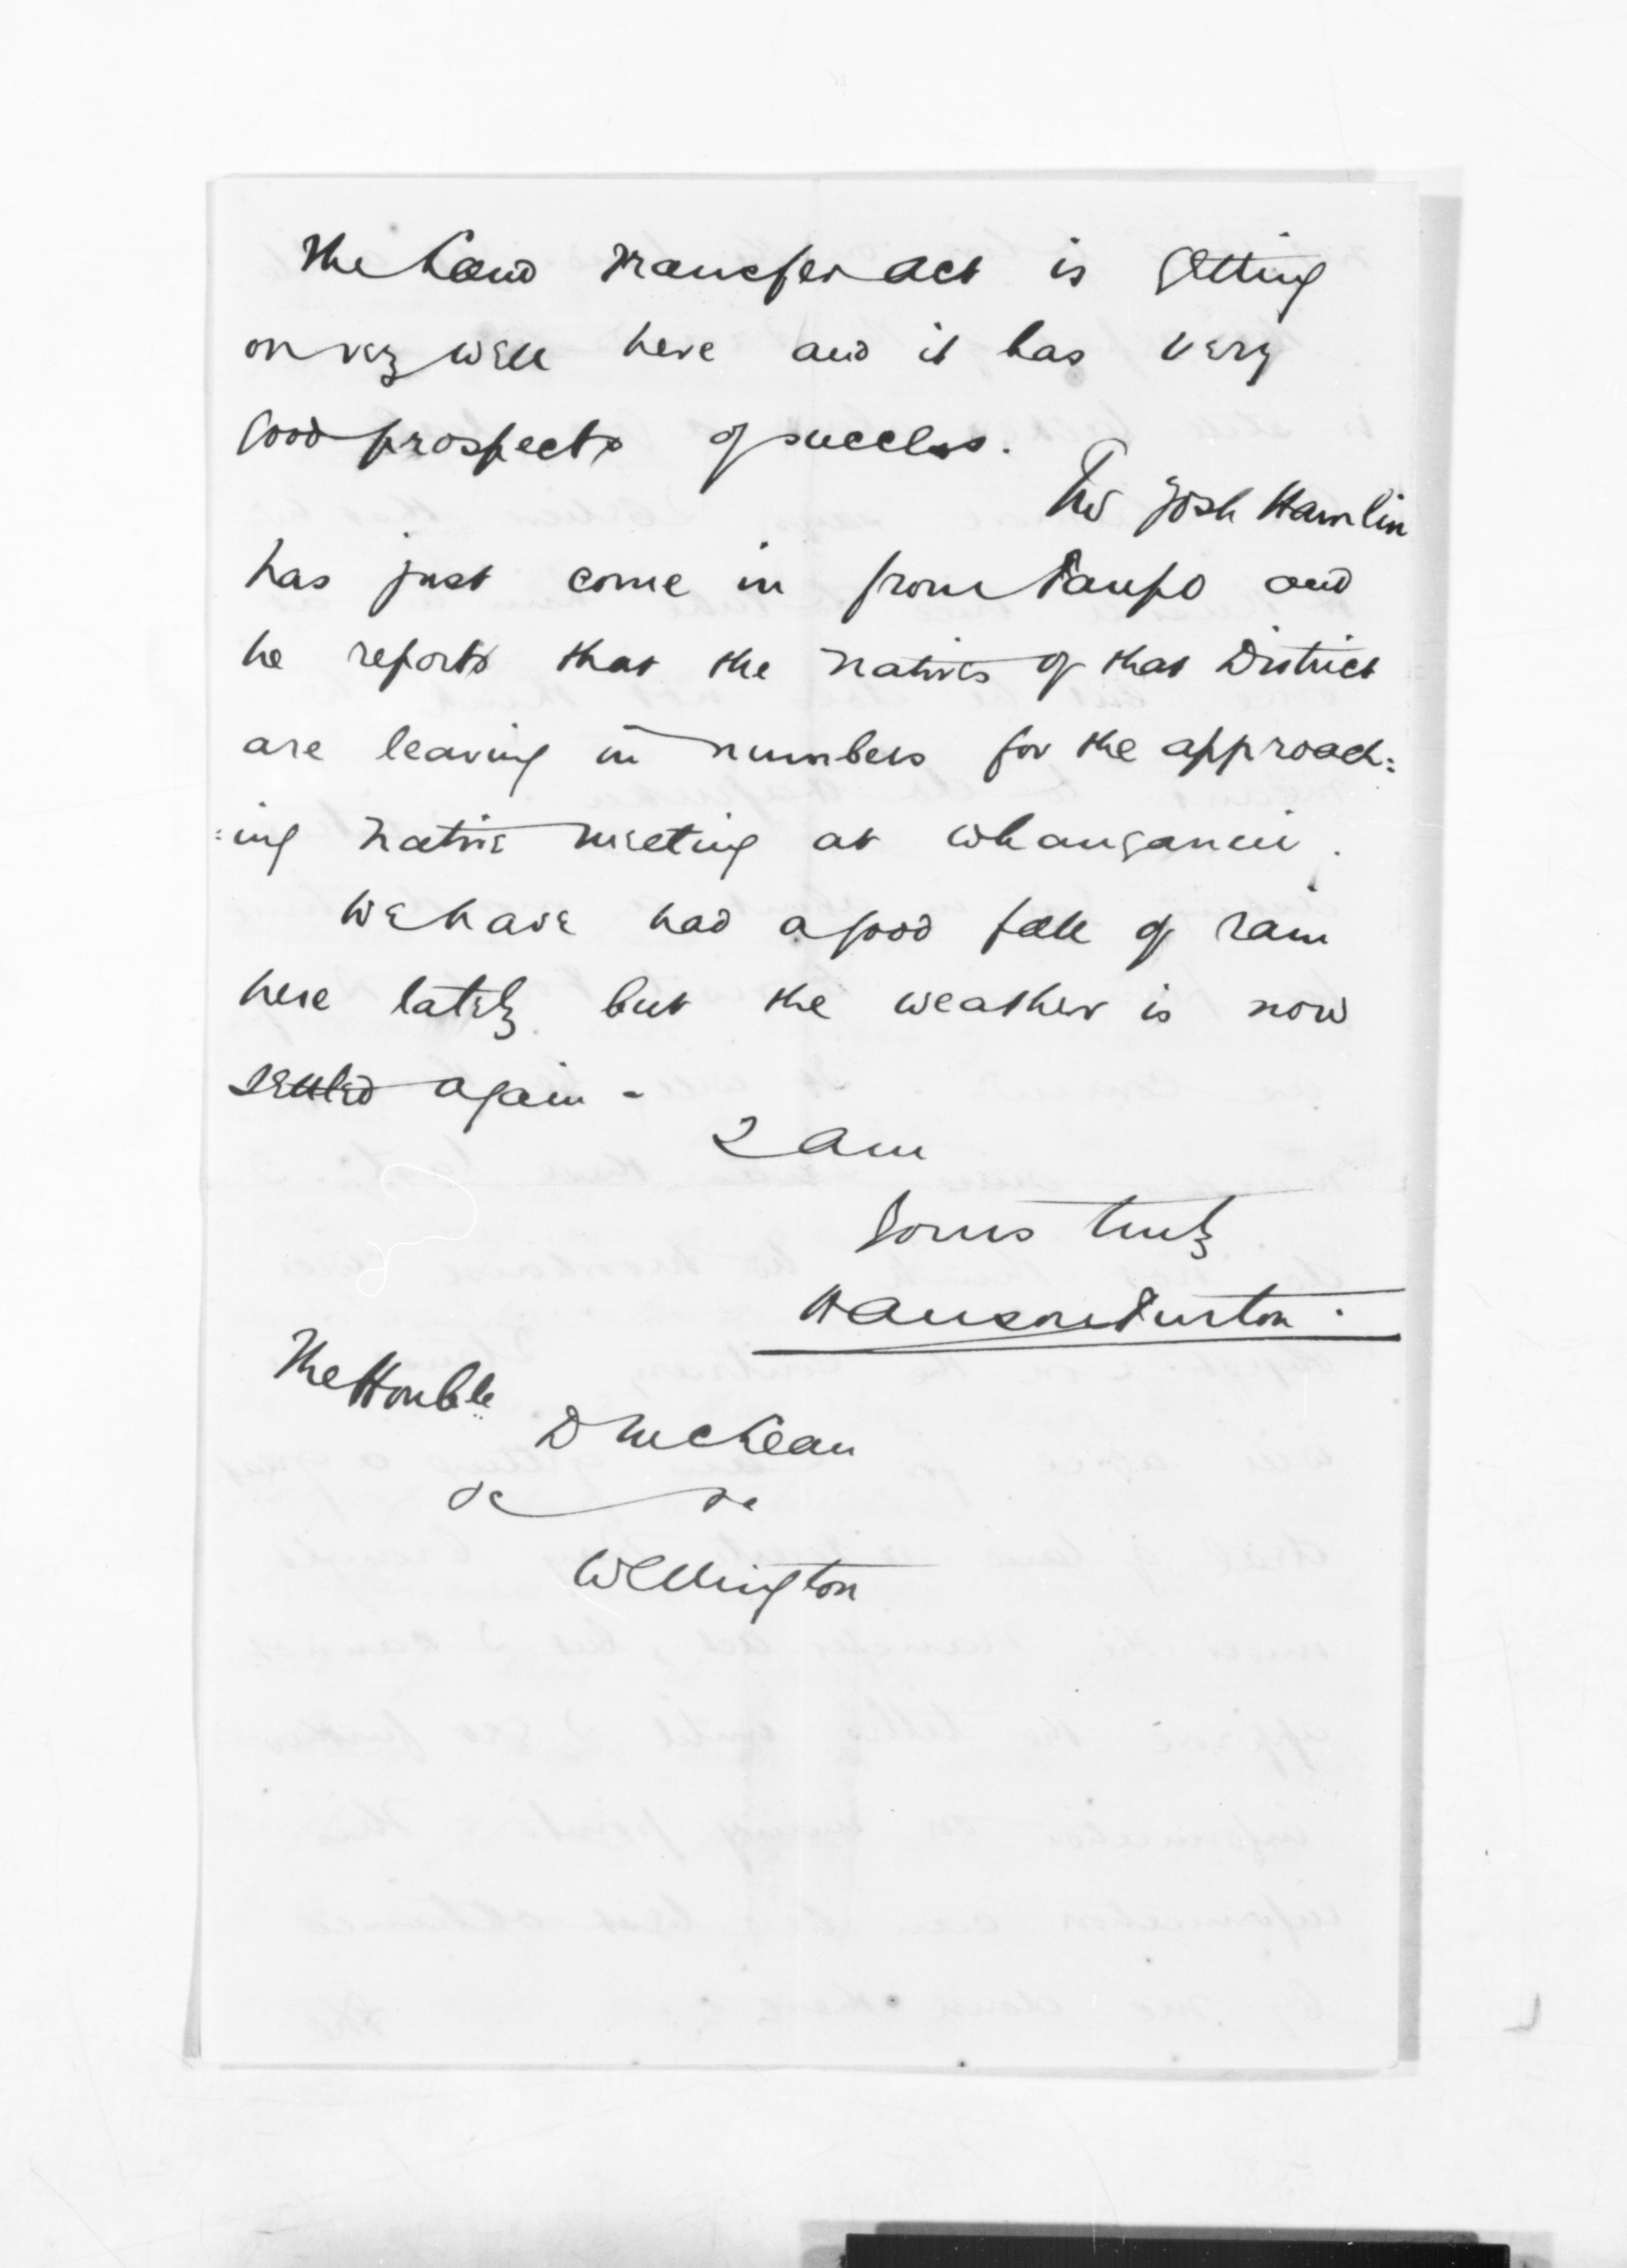 The Land Transfer Act is getting
on very well here and it has very
good prospects of success.
Mr Josh Hamlin
has just come in from Taupo and
he reports that the natives of that District
are leaving in numbers for the approach:
:ing native meeting at Whanganui.
We have had a good fall of rain
here lately but the weather is now
settled again -
I am
Yours truly
Hanson Turton.
The Honble
D McLean
&c &c
Wellington